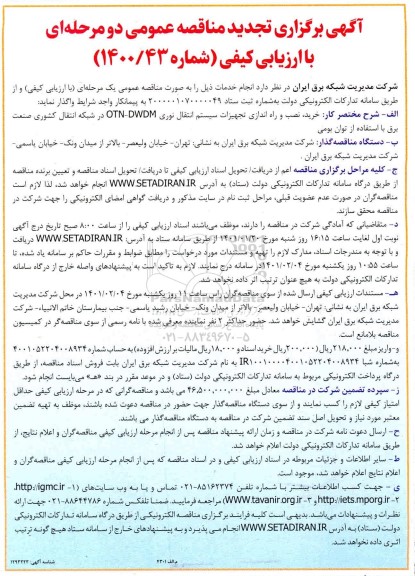 آگهی برگزاری تجدید مناقصه عمومی دو مرحله‌ای
با ارزیابی کیفی (شماره ۱۴۰۰/۴۳)
شرکت مدیریت شبکه برق ایران در نظر دارد انجام خدمات ذیل را به صورت مناقصه عمومی یک مرحله‌ای (با ارزیابی کیفی) و از
طریق سامانه تدارکات الکترونیکی دولت به‌شماره ثبت ستاد ۲۰۰۰۰۰۱۰۷۰۰۰۰۰۴۹ به پیمانکار واجد شرایط واگذار نماید:
الف- شرح مختصر کار: خرید، نصب و راه اندازی تجهیزات سیستم انتقال نوری OTN-DWDM در شبکه انتقال کشوری صنعت
برق با استفاده از توان بومی
ب- دستگاه مناقصه‌گذار: شرکت مدیریت شبکه برق ایران به نشانی: تهران- خیابان ولیعصر- بالاتر از میدان ونک- خیابان یاسمی-
شرکت مدیریت شبکه برق ایران .
ج- کلیه مراحل برگزاری مناقصه اعم از دریافت/ تحویل اسناد ارزیابی کیفی تا دریافت/ تحویل اسناد مناقصه و تعیین برنده مناقصه
از طریق درگاه سامانه تدارکات الکترونیکی دولت (ستاد) به آدرس WWW.SETADIRAN.IR انجام خواهد شد، لذا لازم است
مناقصه‌گران در صورت عدم عضویت قبلی، مراحل ثبت نام در سایت مذکور و دریافت گواهی امضای الکترونیکی را جهت شرکت در
مناقصه محقق سازند.
د- متقاضیانی که آمادگی شرکت در مناقصه را دارند، موظف می‌باشند اسناد ارزیابی کیفی را از ساعت ۸:۰۰ صبح تاریخ درج آگهی
نوبت اول لغایت ساعت ۱۶:۱۵ روز شنبه مورخ از طریق سامانه ستاد به آدرس: WWW.SETADIRAN.IR دریافت
و با توجه به مندرجات اسناد، مدارک لازم را تهیه و مستندات مورد درخواست را مطابق ضوابط و مقررات حاکم بر سامانه یاد شده، تا
ساعت ۱۰:۵۵ روز یکشنبه مورخ ۱۴۰۱/۰۲/۰۴ در سامانه درج نمایند. لازم به تاکید است به پیشنهادهای واصله خارج از درگاه سامانه
تدارکات الکترونیکی دولت به هیچ عنوان ترتیب اثر داده نخواهد شد.
هـ- مستندات ارزیابی کیفی ارسال شده از سوی مناقصه‌گران راس ساعت ۱۱ روز یکشنبه مورخ ۱۴۰۱/۰۲/۰۴ در محل شرکت مدیریت
شبکه برق ایران به نشانی: تهران- خیابان ولیعصر- بالاتر از میدان ونک- خیابان رشید یاسمی- جنب بیمارستان خاتم الانبیاء- شرکت
مدیریت شبکه برق ایران گشایش خواهد شد. حضور حداکثر ۲ نفر نماینده معرفی شده با نامه رسمی از سوی مناقصه‌گر در کمیسیون
مناقصه بلامانع است.
و- واریز مبلغ ۲۱۸,۰۰۰ ریال (۲۰۰,۰۰۰ ریال خرید اسناد و ۱۸,۰۰۰ ریال مالیات بر ارزش افزوده) به حساب شماره ۴۰۰۱۰۵۲۲۰۴۰۰۸۹۳۴
به‌شماره شبا به نام شرکت مدیریت شبکه برق ایران بابت فروش اسناد مناقصه، از طریق
درگاه پرداخت الکترونیکی مربوط به سامانه تدارکات الکترونیکی دولت (ستاد) و در موعد مقرر در بند «هـ» می‌بایست انجام شود.
ز- سپرده تضمین شرکت در مناقصه معادل مبلغ ۴۶,۵۰۰,۰۰۰,۰۰۰ می باشد و مناقصه‌گرانی که در مرحله ارزیابی کیفی حداقل
امتیاز کیفی لازم را کسب نمایند و از سوی دستگاه مناقصه‌گذار جهت حضور در مناقصه دعوت شده باشند، موظف به تهیه تضمین
معتبر مورد نیاز و تحویل اصل سند تضمین شرکت در مناقصه به دستگاه مناقصه‌گذار می باشند.
ح- ارسال دعوت نامه شرکت در مناقصه و زمان ارائه پیشنهاد مناقصه پس از انجام مرحله ارزیابی کیفی مناقصه‌گران و اعلام نتایج، از
طریق سامانه تدارکات الکترونیکی دولت اعلام خواهد شد.
ط- سایر اطلاعات و جزئیات مربوطه در اسناد ارزیابی کیفی و در اسناد مناقصه که پس از انجام مرحله ارزیابی کیفی مناقصه‌گران و
اعلام نتایج اعلام خواهد شد، موجود است.
ی- جهت کسب اطلاعات بیشتر با شماره تلفن ۸۵۱۶۲۳۷۴-۰۲۱ تماس و یا به وب سایت‌های (۱- http://igmc.ir،
۲- http://iets.mporg.ir و ۳- WWW.tavanir.org.ir) مراجعه فرمایید. ضمنا تلفکس شماره ۸۸۶۴۴۷۸۶-۰۲۱ جهت ارائه
نظرات و پیشنهادات می‌باشد. بدیهی است کلیه فرایند برگزاری مناقصه الکترونیکی از طریق درگاه سامانه تدارکات الکترونیکی
دولت (ستاد) به آدرس WWW.SETADIRAN.IR انجام می پذیرد و به پیشنهادهای خارج از سامانه ستاد هیچ گونه ترتیب
اثری داده نخواهد شد.
شناسه آگهی: ۱۲۹۴۲۲۲ م الف ۲۳۰۱